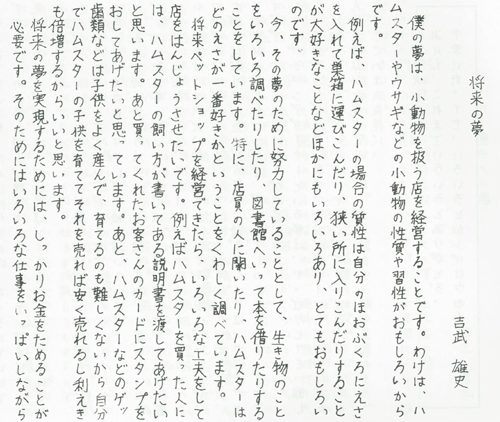 将来の夢
吉武　雄史
僕の夢は、小動物を扱う店を経営することです。わけは、ハ
ムスターやウサギなどの小動物の性質や習性がおもしろいから
です。
例えば、ハムスターの場合の質性は自分のほおぶくろにえさ
を入れて巣箱に運びこんだり、狭い所に入りこんだりすること
が大好きなことなどほかにもいろいろあり、とてもおもしろい
のです。
今、その夢のために努力していることとして、生き物のこと
をいろいろ調べたりしたり、図書館へいって本を借りたりする
ことをしています。特に、店員の人に聞いたり、ハムスターは
どのえさが一番好きかということをくわしく調べています。
将来ペットショップを経営できたら、いろいろな工夫をして
店をはんじょうさせたいです。例えばハムスターを買った人に
は、ハムスターの飼い方が書いてある説明書を渡してあげたい
と思います。あと買ってくれたお客さんのカードにスタンプを
おしてあげたいと思っています。あと、ハムスターなどのゲッ
歯類などは子供をよく産んで、育てるのも難しくないから自分
でハムスターの子供を育ててそれを売れば安く売れるし利えき
も倍増するからいいと思います。
将来の夢を実現するためには、しっかりお金をためることが
必要です。そのためにはいろいろな仕事をいっぱいしながら